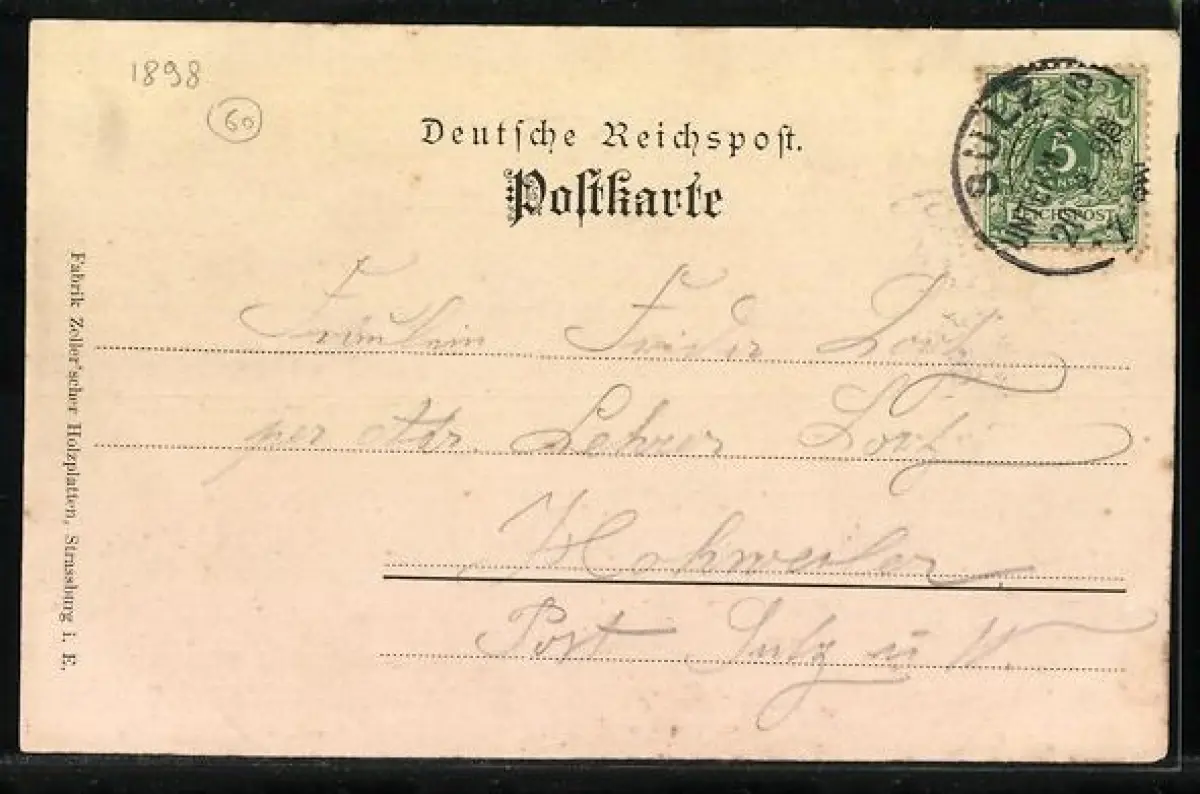 1898
60
Deutsche Reichspost.
Postkarte
SULZ
UNTERM WALD
5
REICHSPOST
20
98
Fräulein Frieda Lorz
per Adr. Lehrer Lorz
Hohweiler
Post Sulz u. W.
Fabrik Zeller'scher Holzplatten, Strassburg i. E.